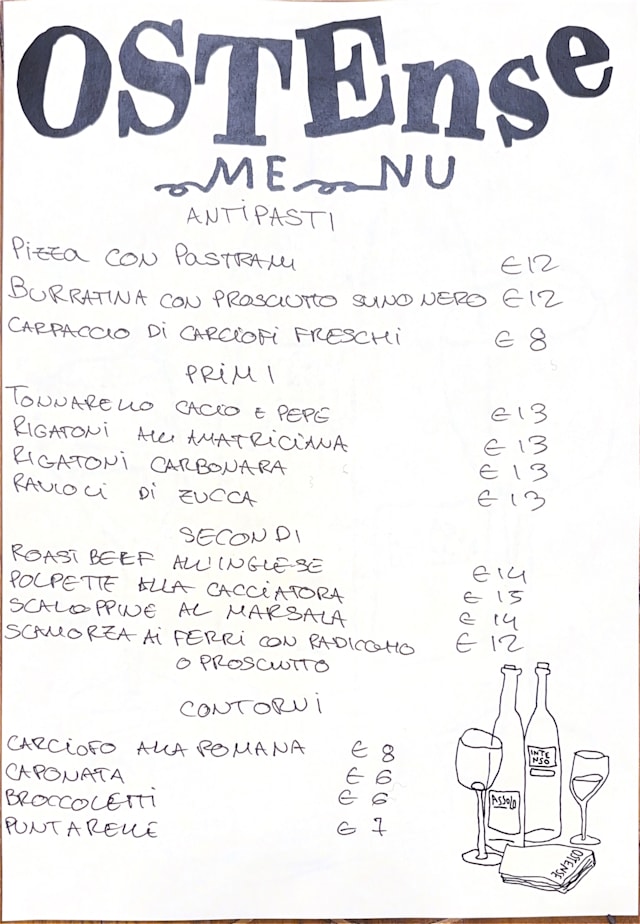 OSTEnse
MENU
ANTIPASTI
PIZZA CON PASTRAMI €12
BURRATINA CON PROSCIUTTO SUINO NERO €12
CARPACCIO DI CARCIOFI FRESCHI € 8
PRIMI
TONNARELLO CACIO E PEPE €13
RIGATONI ALL'AMATRICIANA € 13
RIGATONI CARBONARA € 13
RAVIOLI DI ZUCCA € 13
SECONDI
ROAST BEEF ALL'INGLESE €14
POLPETTE ALLA CACCIATORA € 15
SCALOPPINE AL MARSALA € 14
SCAMORZA AI FERRI CON RADICCHIO € 12
O PROSCIUTTO
CONTORNI
CARCIOFO ALLA ROMANA € 8
CAPONATA € 6
BROCCOLETTI € 6
PUNTARELLE € 7
INTE
NSO
ASSOLO
OSTENSE